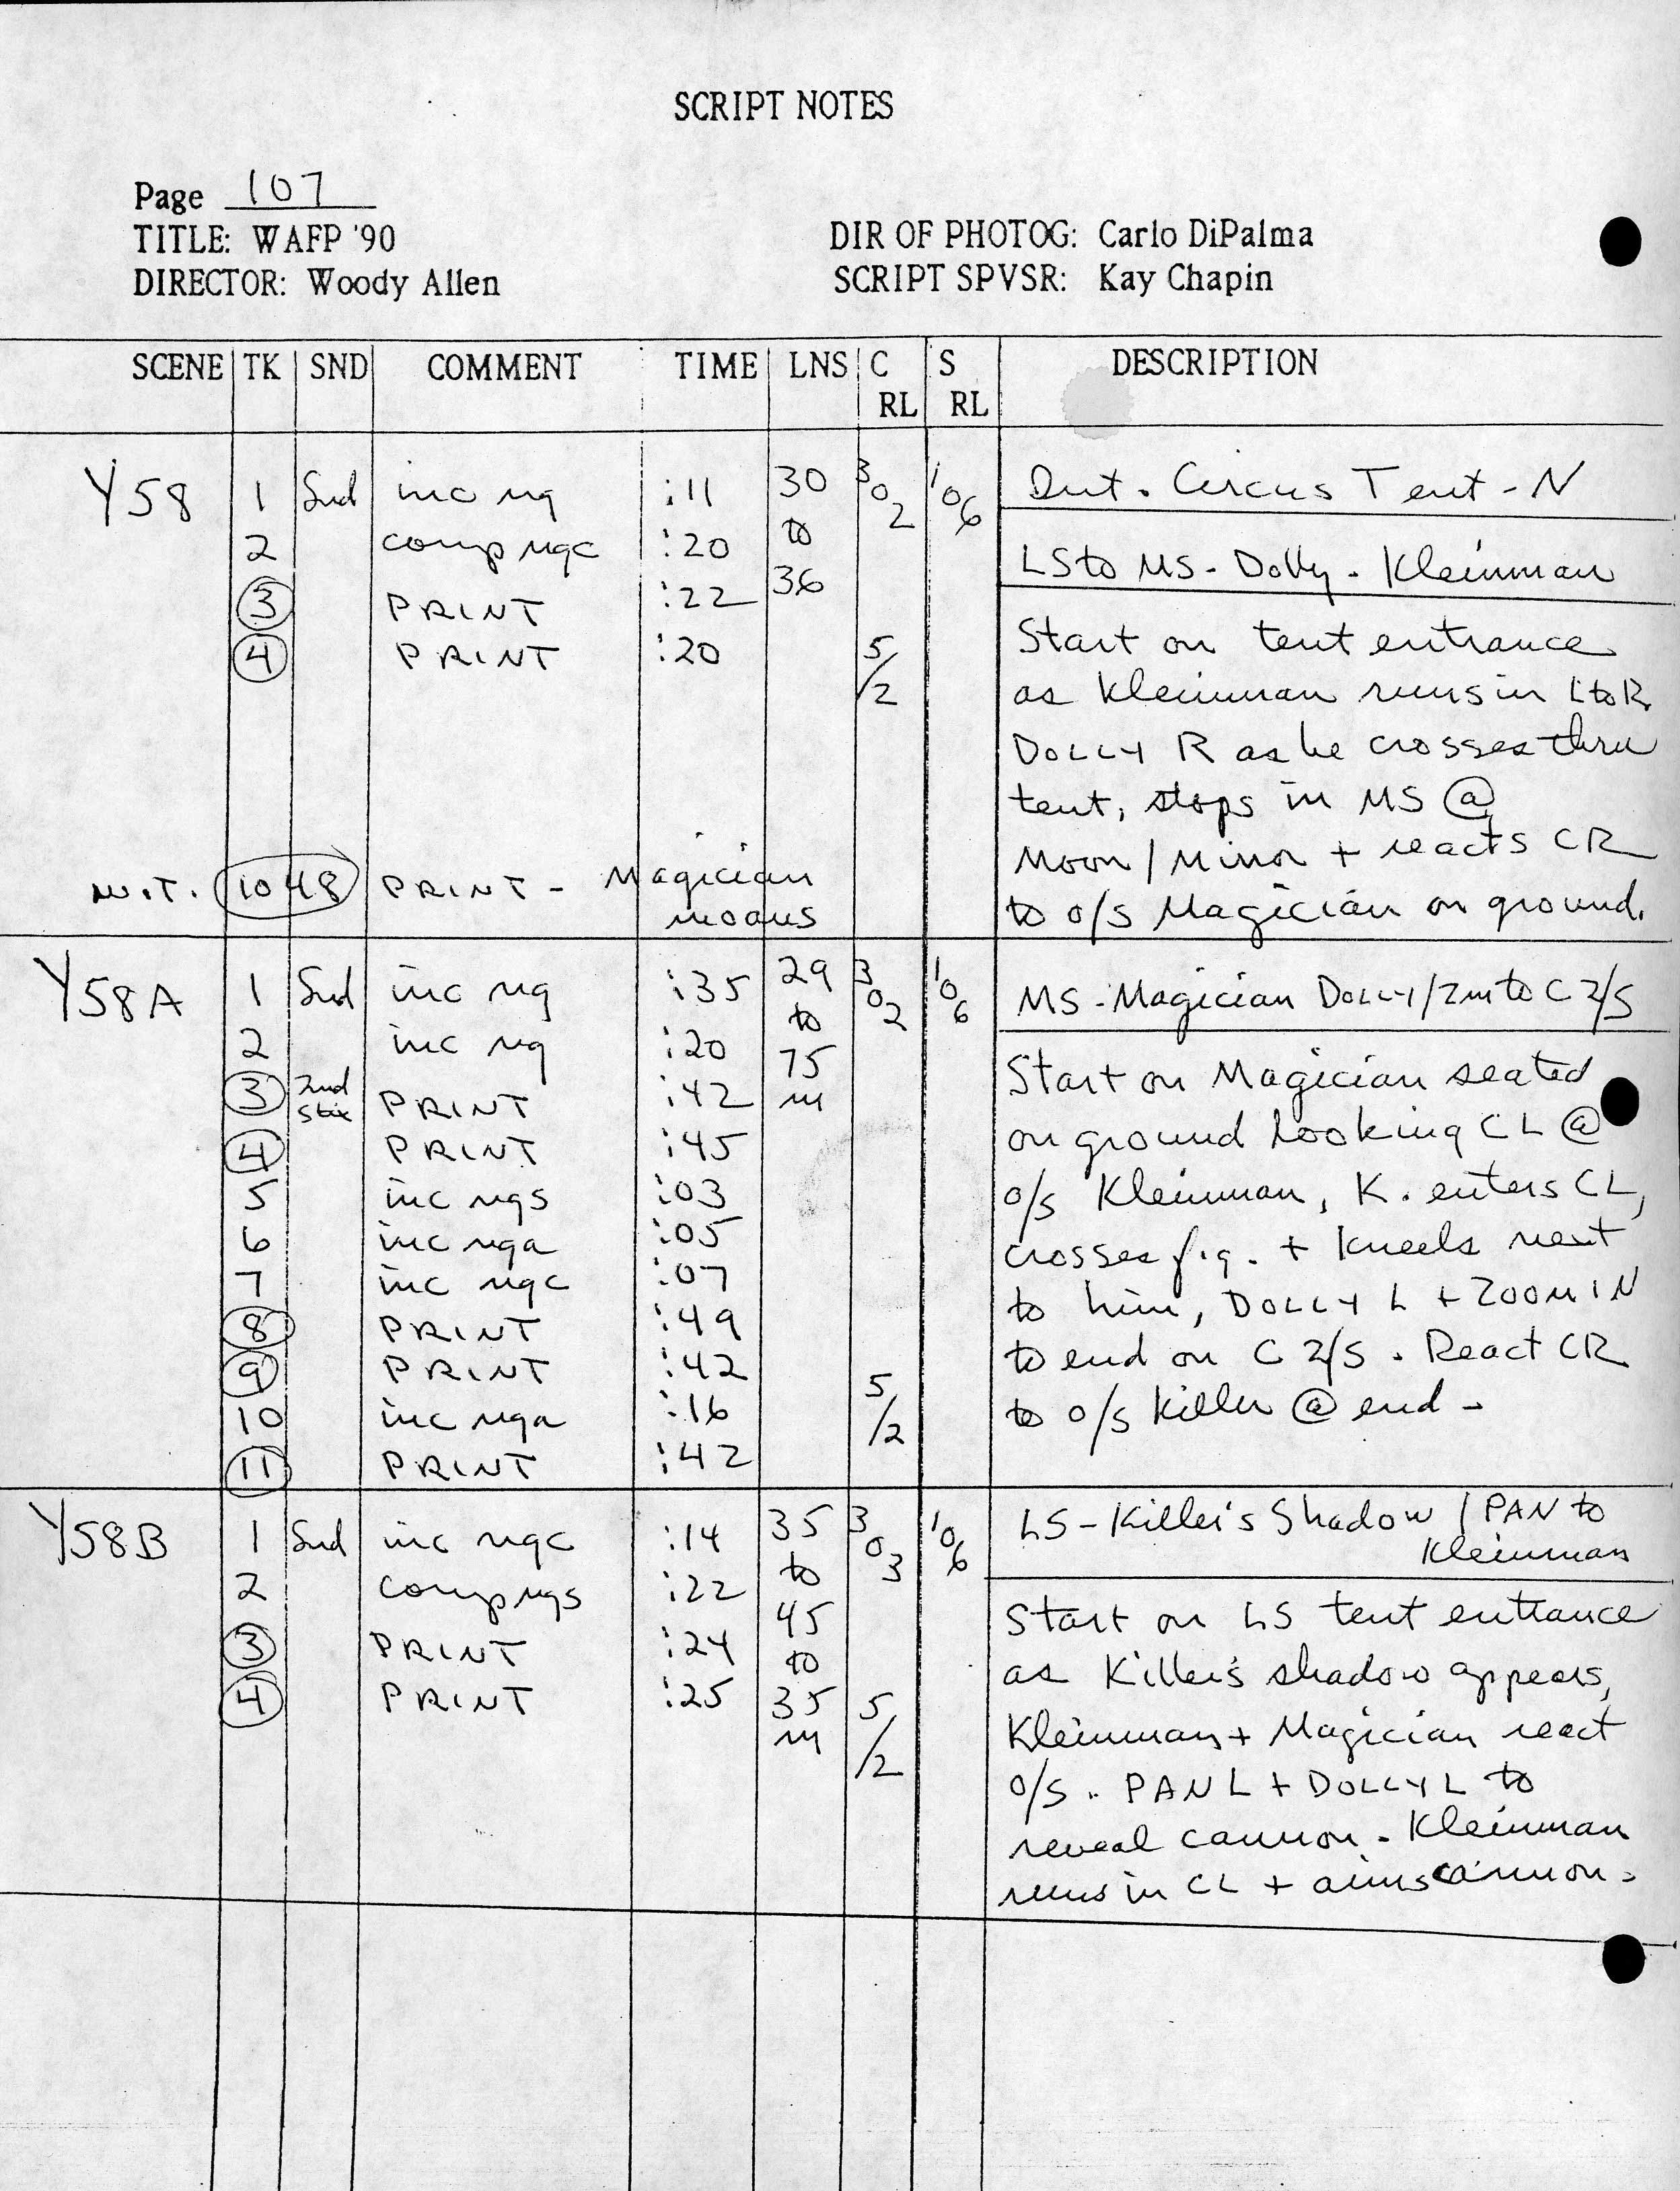 SCRIPT NOTES
Page 107
TITLE: WAFP '90
DIRECTOR: Woody Allen
DIR OF PHOTOG: Carlo DiPalma
SCRIPT SPVSR: Kay Chapin
SCENE TK SND COMMENT TIME LNS C RL S RL DESCRIPTION
Y58 1 Snd inc ng :11 30 302 106 Int. Circus Tent - N
2 comp ngc :20 to
LS to MS - Dolly - Kleinman
3 PRINT :22 36
4 PRINT :20 5/2
Start on tent entrance
as Kleinman runs in L to R.
DOLLY R as he crosses thru
tent, stops in MS @
Moon / Mirror + reacts CR
to o/s Magician on ground.
W.T. 1048 PRINT - Magician
moans
Y58A 1 Snd inc ng :35 29 302 106 MS - Magician DOLLY/Zm to C 2/S
2 inc ng :20 to
3 2nd Stix PRINT :42 75 m
4 PRINT :45
5 inc ngs :03
6 inc nga :05
7 inc ngc :07
8 PRINT :49
9 PRINT :42
10 inc nga :16 5/2
11 PRINT :42
Start on Magician seated
on ground looking CL @
o/s Kleinman, K. enters CL,
crosses f.g. + kneels next
to him, DOLLY L + ZOOM IN
to end on C 2/S. React CR
to o/s Killer @ end -
Y58B 1 Snd inc ngc :14 35 303 106 LS - Killer's Shadow / PAN to
Kleinman
2 comp ngs :22 to
3 PRINT :24 45 to
4 PRINT :25 35 m 5/2
Start on LS tent entrance
as Killer's shadow appears,
Kleinman + Magician react
o/s. PAN L + DOLLY L to
reveal cannon - Kleinman
runs in CL + aims cannon.